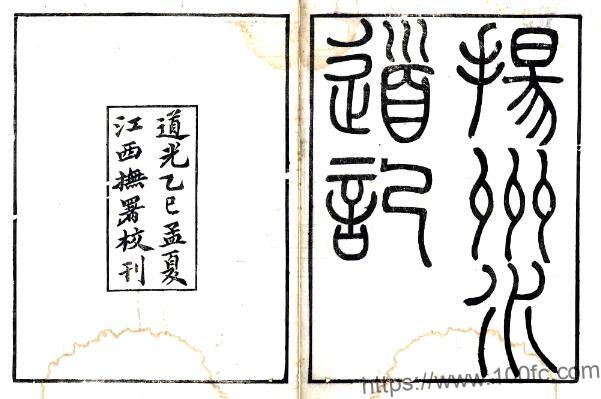 揚州水
道記
道光乙巳孟夏
江西撫署校刊
https://www.100fc.com